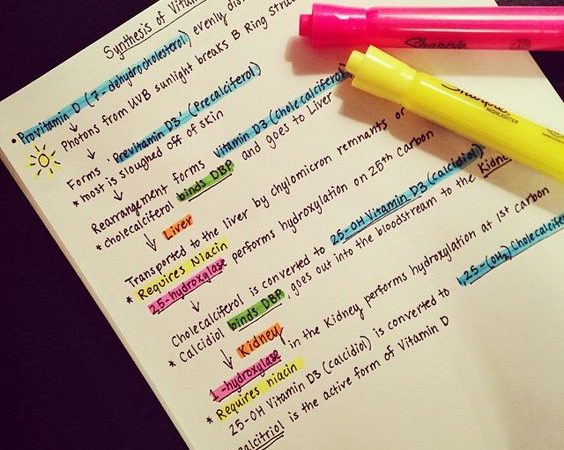 Synthesis of Vita
• Provitamin D (7-dehydrocholesterol) evenly dis
↓ Photons from UVB sunlight breaks B Ring Stru
↓
Forms Previtamin D3' (Precalciferol)
* most is sloughed off of skin
↓
Rearrangement forms Vitamin D3 (Cholecalciferol)
* cholecalciferol binds DBP and goes to Liver
↓ Liver
Transported to the liver by chylomicron remnants or
* Requires Niacin
25-hydroxylase performs hydroxylation on 25th Carbon
↓
Cholecalciferol is converted to 25-OH Vitamin D3 (calcidiol)
* Calcidiol binds DBP, goes out into the bloodstream to the Kidne
↓ Kidney
1-hydroxylase in the Kidney performs hydroxylation at 1st carbon
* Requires niacin
25-OH Vitamin D3 (calcidiol) is converted to 1,25-(OH2) Cholecalcife
calcitriol is the active form of Vitamin D
Sharpie
Sharpie